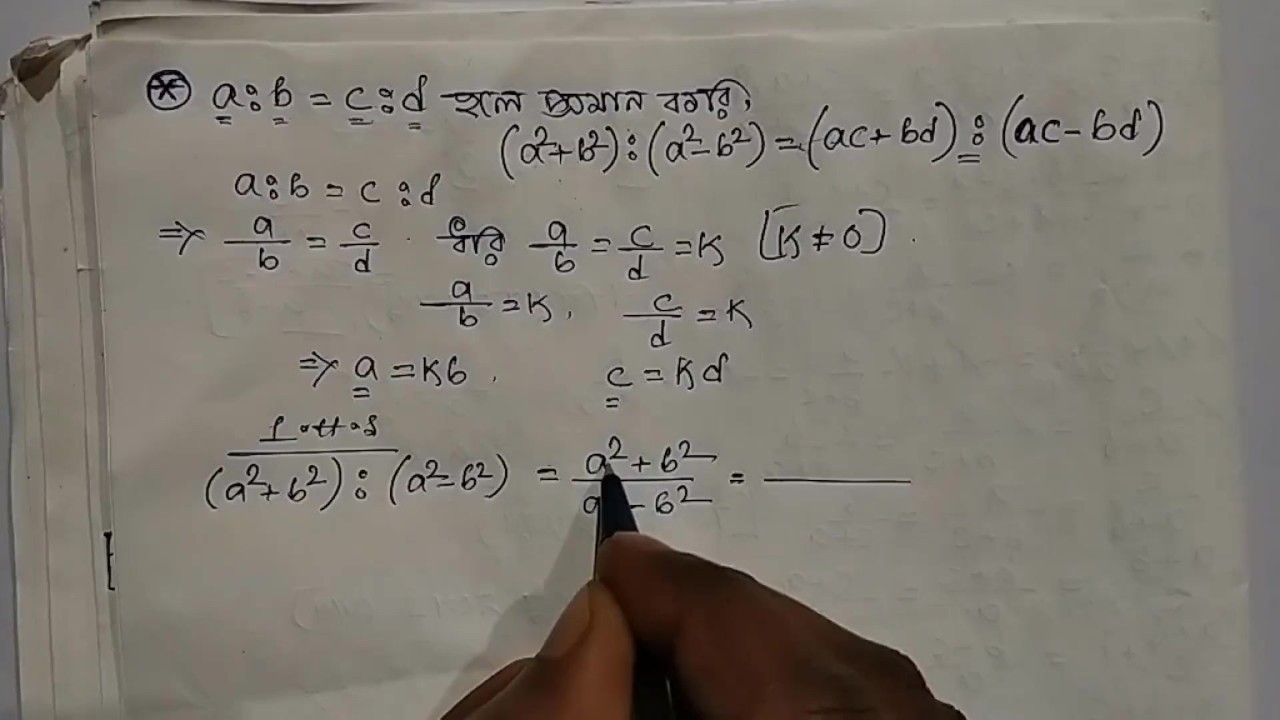 ⊛ a:b = c:d হলে প্রমাণ করি,
(a²+b²):(a²-b²) = (ac+bd):(ac-bd)
a:b = c:d
⇒ a/b = c/d . ধরি a/b = c/d = K [K≠0].
a/b = K, c/d = K
⇒ a = Kb, c = Kd
(a²+b²):(a²-b²) = a²+b²/a²-b² =